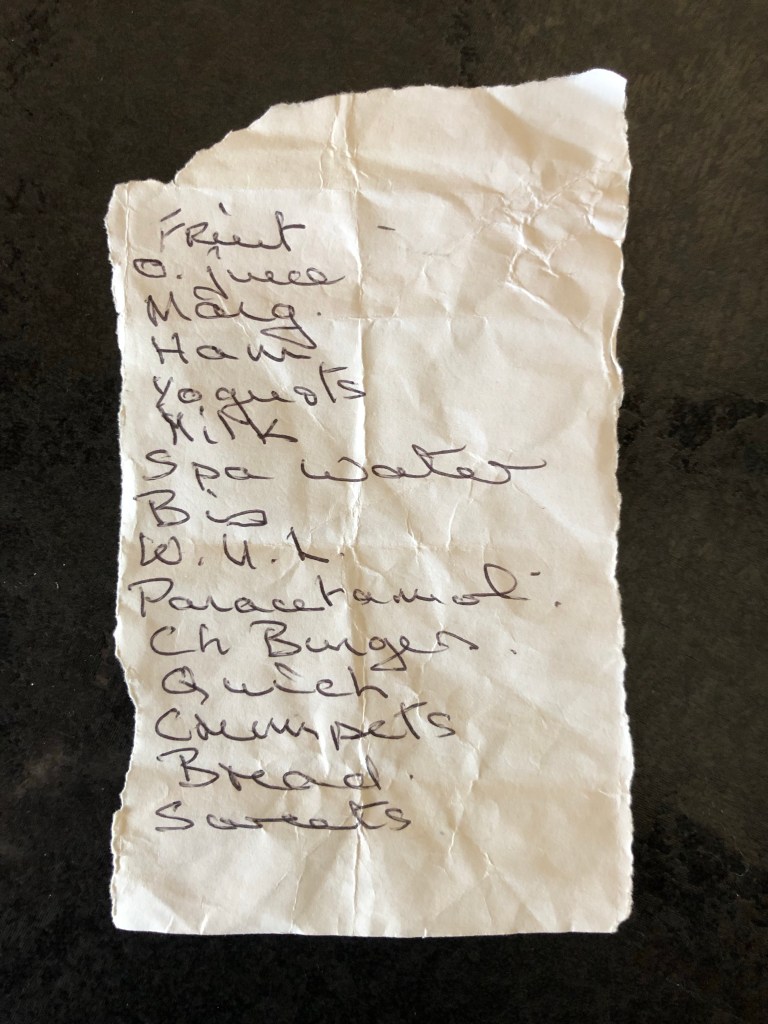 Fruit -
O. juice
Marg.
Ham
Yoguots
Milk
Spa water
Bis
W.U.L.
Paracetamol.
Ch Burgers.
Quich
Crumpets
Bread.
Sweets